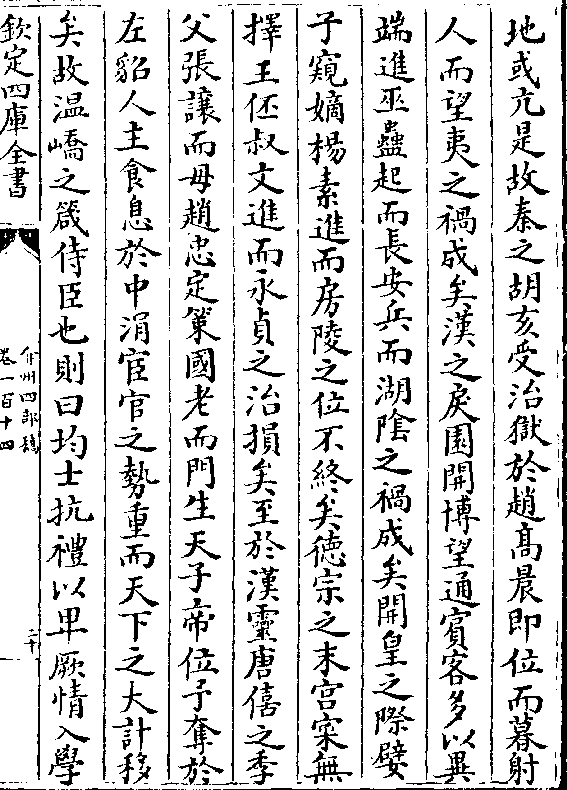 地或亢是故秦之胡亥受治獄於趙髙晨即位而暮射
人而望夷之禍成矣漢之戾園開博望通賓客多以異
端進巫蠱起而長安兵而湖隂之禍成矣開皇之際嬖
子窺嫡楊素進而房陵之位不終矣徳宗之末宫寀無
擇王伾叔文進而永貞之治損矣至於漢靈唐僖之季
父張譲而母趙忠定䇿國老而門生天子帝位予奪於
左貂人主食息於中涓宦官之勢重而天下之大計移
矣故温嶠之箴侍臣也則曰均士抗禮以卑厥情入學
欽定四庫全書
弇州四部稿
卷一百十四
二十